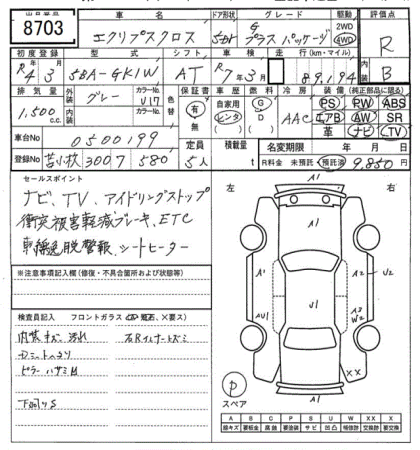 8703
車名 ドア形状 グレード 駆動 評価点
エクリプスクロス 5Dr G プラスパッケージ 2WD 4WD R
初度登録 型式 シフト 車検 走行(km・マイル)
R4 3 5BA-GK1W AT R7年3月 89,194 B
排気量 外装 グレー カラーNo. U17 色替 保証書 車歴 燃料 冷房 装備(純正部品に限る)
1,500 c.c. 内装 カラーNo. 有 無 自家用 レンタ G D AAC PS PW ABS
エアB AW SR
革 ナビ TV
車台No 0500199 定員 積載量 名変期限 年 月 日
登録No 苫小牧 300 580 5人 t R料金 未預託 預託済 9,850 円
セールスポイント
ナビ、TV、アイドリングストップ
衝突被害軽減ブレーキ、ETC
車線逸脱警報、シートヒーター
※注意事項記入欄(修復・不具合箇所および状態等)
検査員記入 フロントガラス(飛石、×要ス)
内装キズ、汚れ
Dミットヘタリ
下回りS
左 右
A1
A1 A2 U2
U1
AU1 A3 W2
XX
A1
P
スペア
A B C P S U W X XX
線キズ 要板金 腐蝕 要塗装 サビ 凹凸 補修跡 要交換 交換済